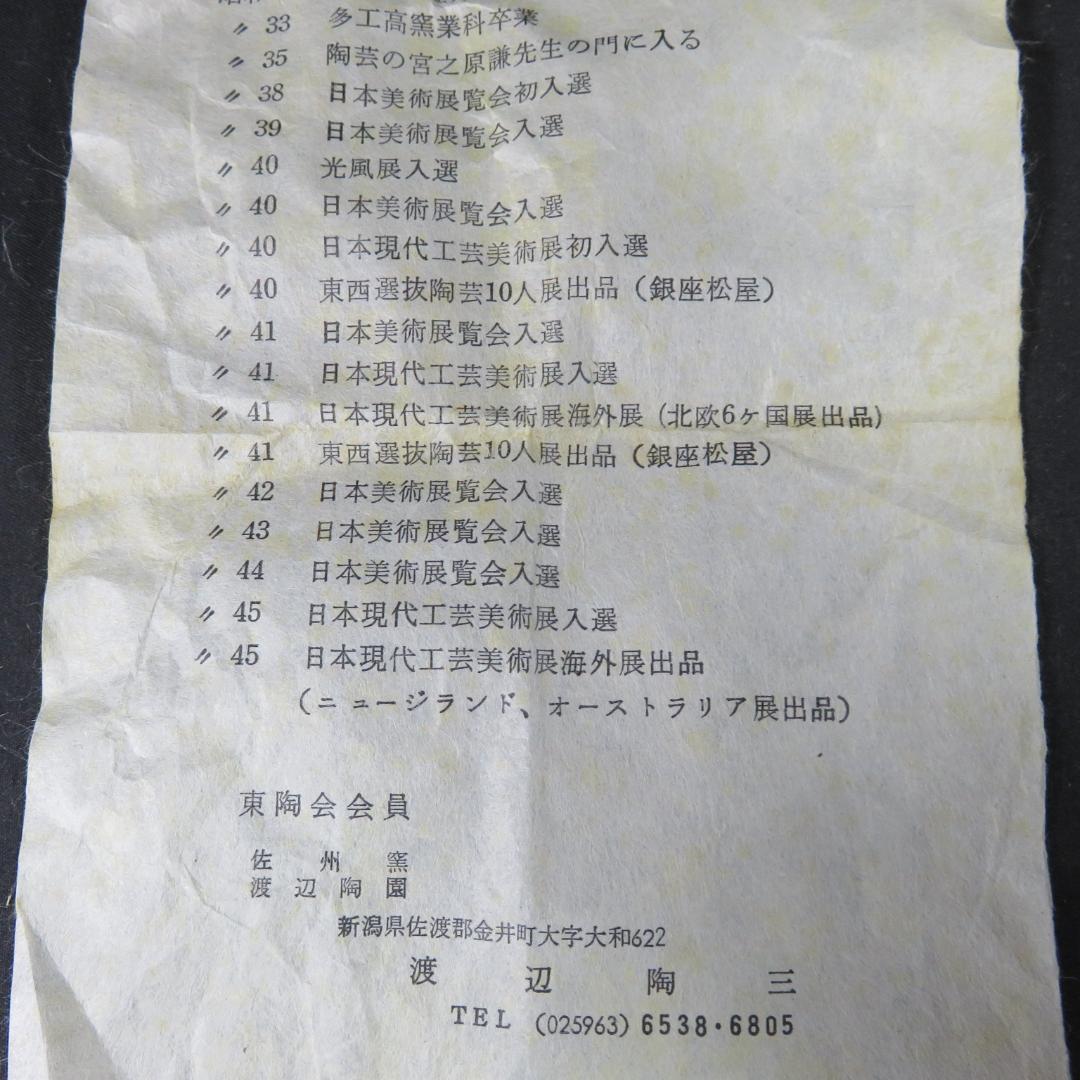 〃 33 多工高窯業科卒業
〃 35 陶芸の宮之原謙先生の門に入る
〃 38 日本美術展覧会初入選
〃 39 日本美術展覧会入選
〃 40 光風展入選
〃 40 日本美術展覧会入選
〃 40 日本現代工芸美術展初入選
〃 40 東西選抜陶芸10人展出品(銀座松屋)
〃 41 日本美術展覧会入選
〃 41 日本現代工芸美術展入選
〃 41 日本現代工芸美術展海外展(北欧6ヶ国展出品)
〃 41 東西選抜陶芸10人展出品(銀座松屋)
〃 42 日本美術展覧会入選
〃 43 日本美術展覧会入選
〃 44 日本美術展覧会入選
〃 45 日本現代工芸美術展入選
〃 45 日本現代工芸美術展海外展出品
(ニュージランド、オーストラリア展出品)
東陶会会員
佐州窯
渡辺陶園
新潟県佐渡郡金井町大字大和622
渡辺陶三
TEL (025963) 6538・6805